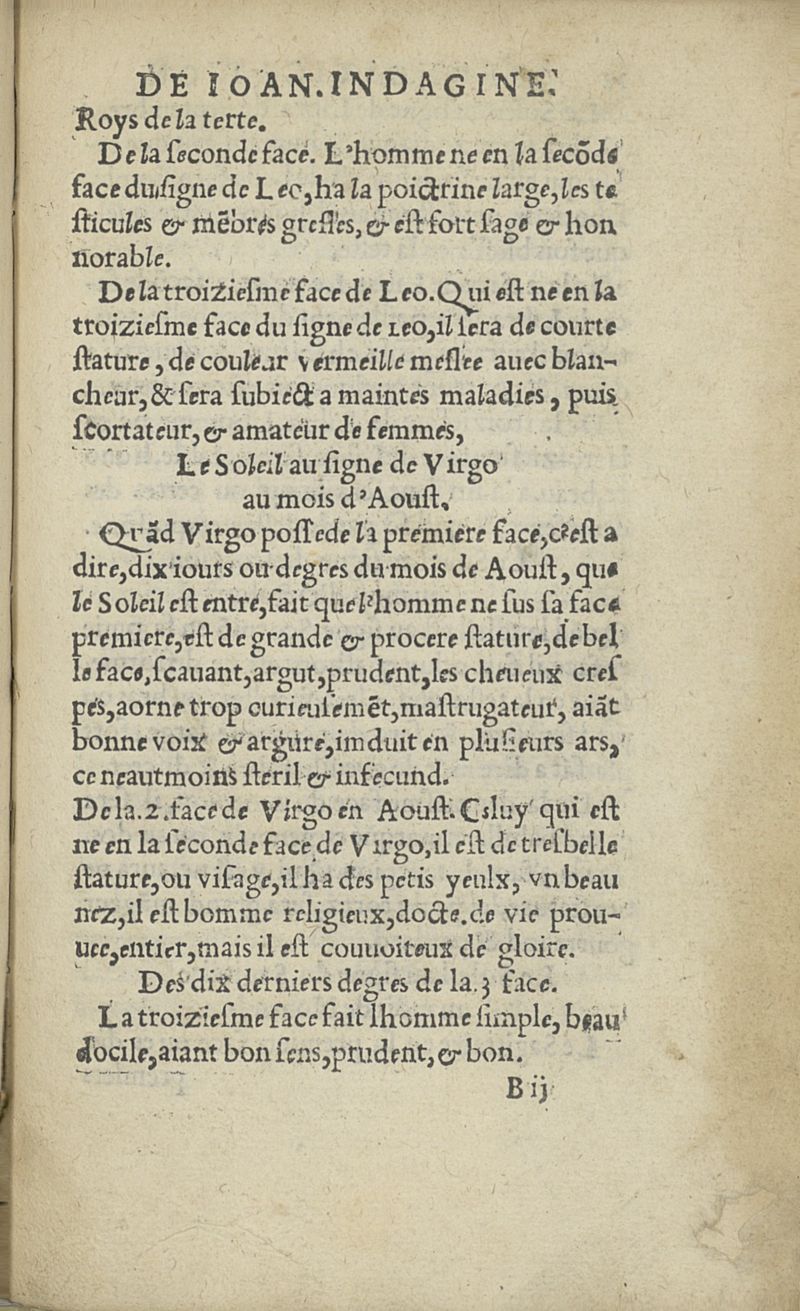 DE IOAN.INDAGINE.
Roys de la terte.
De la ſeconde face. L'homme ne en la ſecõde
face du ſigne de Leo,ha la poictrine large,les te
ſticules & mẽbres greſles,& eſt fort ſage & hon
norable.
De la troizieſme face de Leo.Qui eſt ne en la
troizieſme face du ſigne de Leo,il ſera de courte
ſtature, de couleur vermeille meſlee auec blan-
cheur,& ſera ſubiect a maintes maladies, puis
ſcortateur,& amateur de femmes,
Le Soleil au ſigne de Virgo
au mois d'Aouſt.
Quãd Virgo poſſede la premiere face,c'eſt a
dire,dix iours ou degres du mois de Aouſt, que
le Soleil eſt entre,fait que l'homme ne ſus ſa face
premiere,eſt de grande & procere ſtature,de bel
le face,ſcauant,argut,prudent,les cheueux creſ
pes,aorne trop curieuſemẽt,maſtrugateur, aiãt
bonne voix & argure,imduit en pluſieurs ars,
ce neautmoins ſteril & infecund.
De la.2.face de Virgo en Aouſt. Celuy qui eſt
ne en la ſeconde face de Virgo,il eſt de treſbelle
ſtature,ou viſage,il ha des petis yeulx, vn beau
nez,il eſt bomme religieux,docte.de vie prou-
uee,entier,mais il eſt couuoiteux de gloire.
Des dix derniers degres de la.3 face.
La troizieſme face fait lhomme ſimple, beau
docile,aiant bon ſens,prudent,& bon.
B ij